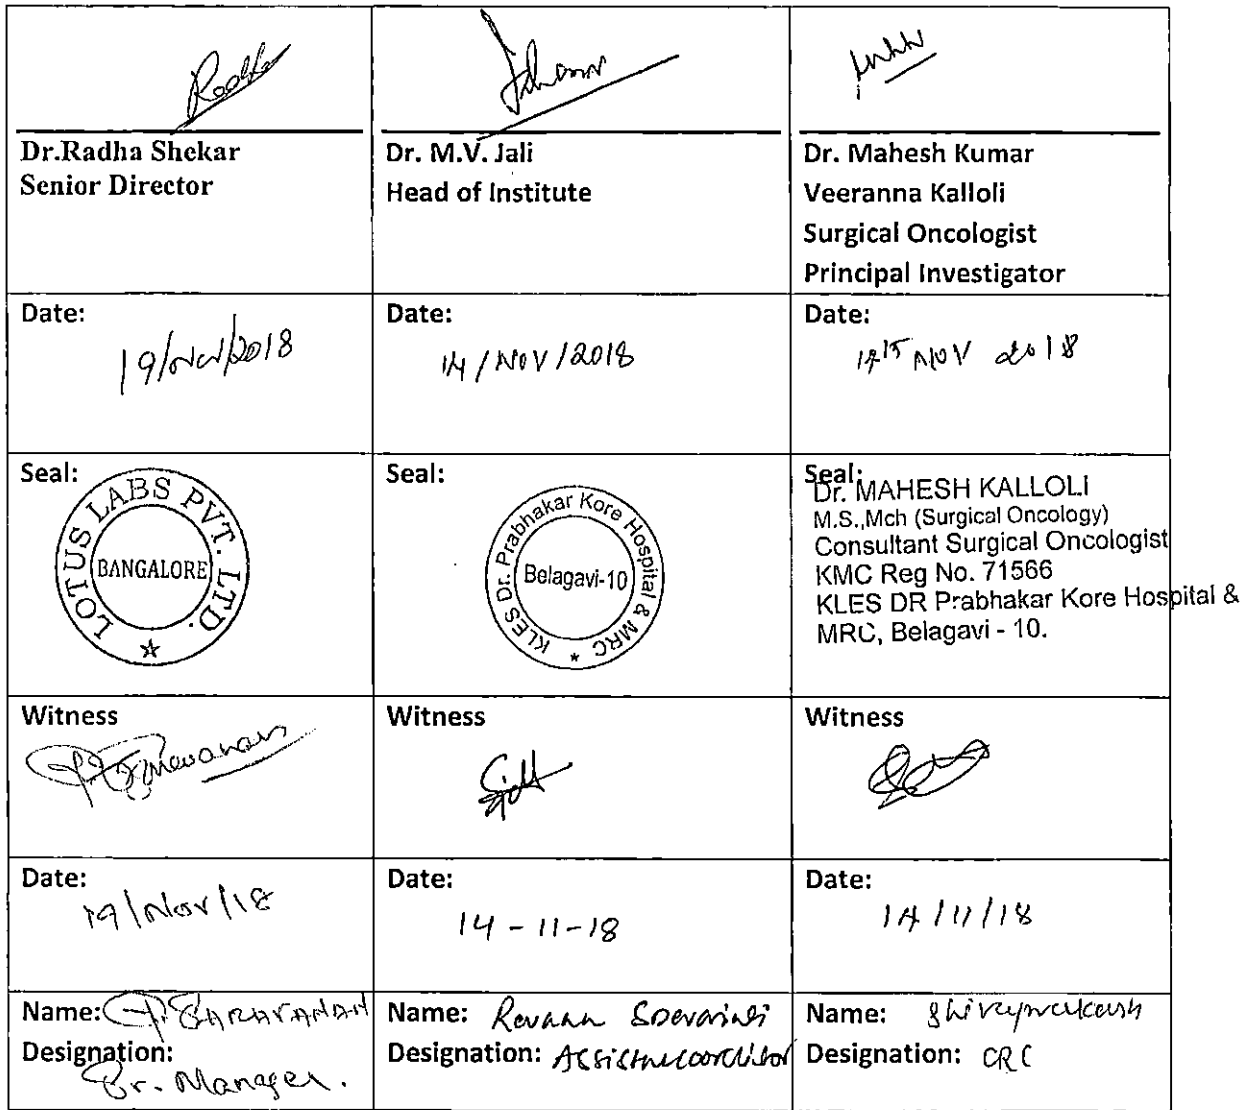 Dr.Radha Shekar
Senior Director
Dr. M.V. Jali
Head of Institute
Dr. Mahesh Kumar
Veeranna Kalloli
Surgical Oncologist
Principal Investigator
Date:
19/Nov/2018
Date:
14/NOV/2018
Date:
NOV 2018
Seal:
LOTUS LABS PVT. LTD.
BANGALORE
Seal:
KLES Dr. Prabhakar Kore Hospital & MRC
Belagavi-10
Seal:
Dr. MAHESH KALLOLI
M.S.,Mch (Surgical Oncology)
Consultant Surgical Oncologist
KMC Reg No. 71566
KLES DR Prabhakar Kore Hospital &
MRC, Belagavi - 10.
Witness
Witness
Witness
Date:
19/Nov/18
Date:
14-11-18
Date:
14/11/18
Name: P. SARAVANAN
Designation:
Sr. Manager.
Name:
Designation:
Name:
Designation: CRC